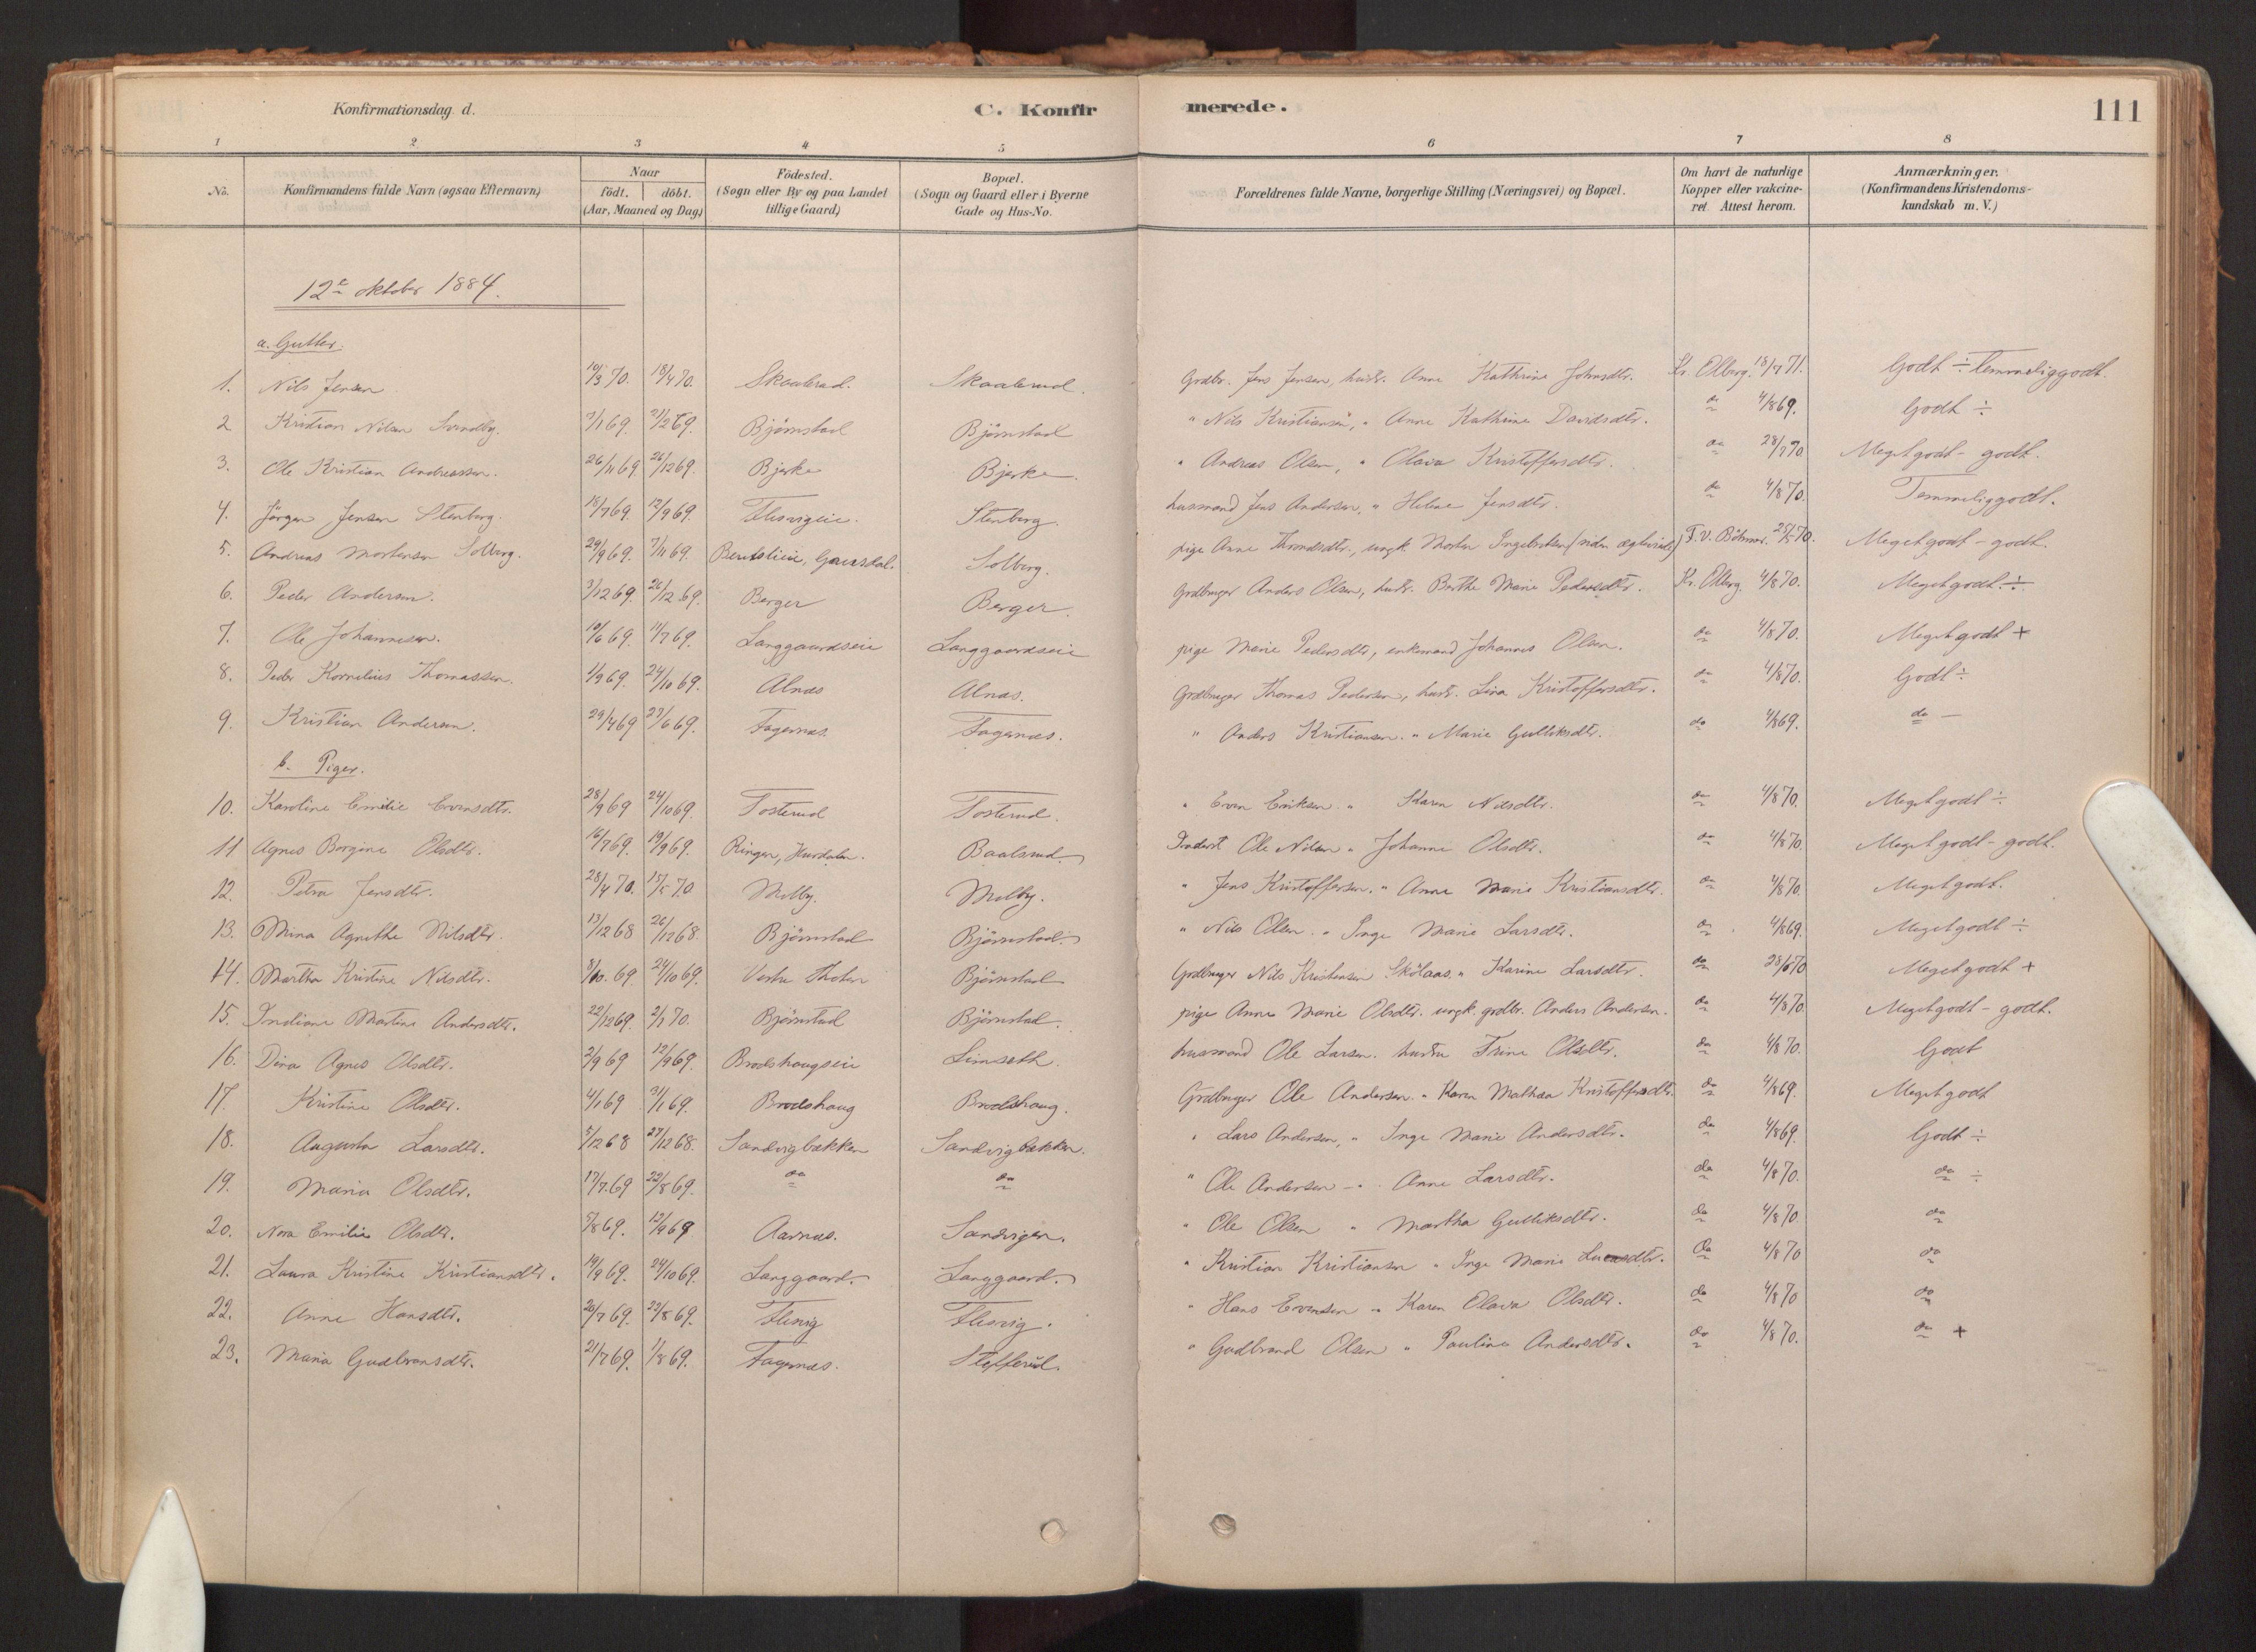 Konfirmationsdag d. C. Konfirmerede. 111
1 2 3 4 5 6 7 8
No. Konfirmandens fulde Navn (ogsaa Efternavn) Naar födt. döbt. (Aar, Maaned og Dag) Födested. (Sogn eller By og paa Landet tillige Gaard) Bopæl. (Sogn og Gaard eller i Byerne Gade og Hus-No. Forældrenes fulde Navne, borgerlige Stilling (Næringsvei) og Bopæl. Om havt de naturlige Kopper eller vakcineret. Attest herom. Anmærkninger. (Konfirmandens Kristendomskundskab m. V.)
12te oktober 1884.
a. Gutter.
1. Nils Jensen 10/3 70. 18/4 70. Skaalerud. Skaalerud. Grdbr. Jens Jensen, hustr. Anne Kathrine Johnsdtr. Kr. Olberg. 18/7 71. Godt ÷ Temmeliggodt.
2 Kristian Nilsen Svendby. 7/1 69. 21/2 69. Björnstad Björnstad " Nils Kristiansen, " Anne Kathrine Davidsdtr. do 4/8 69. Godt ÷
3. Ole Kristian Andreassen. 26/11 69 26/12 69. Bjerke Bjerke. " Andreas Olsen, " Olava Kristoffersdtr. do 28/7 70 Megetgodt - godt.
4. Jörgen Jensen Stenberg. 18/7 69. 12/9 69. Flesvigeie. Stenberg. husmand Jens Andersen, " Helene Jensdtr. do 4/8 70. Temmeliggodt.
5. Andreas Mortensen Solberg. 29/9 69. 7/11 69. Solberg. pige Anne Throndsdtr., ungk. Morten Ingebretsen (siden ægteviede) 25/5 70. Megetgodt - godt.
6. Peder Andersen. 3/12 69. 26/12 69. Berger Berger. Grdbruger Anders Olsen, hustr. Berthe Marie Pedersdtr. Kr. Olberg 4/8 70. Megetgodt. ÷
7. Ole Johannesen. 10/6 69. 11/7 69. Langgaardseie Langgaardseie pige Marie Pedersdtr, enkemand Johannes Olsen. do 4/8 70. Megetgodt +
8. Peder Kornelius Thomassen. 1/9 69. 24/10 69. Alnæs Alnæs. Grdbruger Thomas Pedersen, hustr. Lisa Kristoffersdtr. do 4/8 70. Godt ÷
9. Kristian Andersen. 29/4 69 27/6 69. Fagernæs. Fagernæs. " Anders Kristiansen. " Marie Gulliksdtr. do 4/8 69. do -
b. Piger.
10. Karoline Emilie Evensdtr. 28/9 69 24/10 69. Tosterud Tosterud. " Even Eriksen. " Karen Nilsdtr. do 4/8 70. Megetgodt ÷
11 Agnes Borgine Olsdtr. 16/7 69. 19/9 69. Ringen, Hurdalen. Baalsrud. Inderst Ole Nilsen " Johanne Olsdtr. do 4/8 70. Megetgodt - godt.
12. Petra Jensdtr. 28/4 70. 15/5 70 Melby. Melby. " Jens Kristoffersen. " Anne Marie Kristiansdtr. do 4/8 70. Megetgodt.
13. Mina Agnethe Nilsdtr. 13/12 68 26/12 68. Björnstad Björnstad. " Nils Olsen. " Inge Marie Larsdtr. do 4/8 69. Megetgodt ÷
14. Martha Kristine Nilsdtr. 8/10. 69. 24/10 69. Vestre Thoten Björnstad Grdbruger Nils Kristensen Skölaas. " Karine Larsdtr. do 28/6 70 Megetgodt +
15. Indiane Martine Andersdtr. 22/12 69. 2/1 70. Björnstad Björnstad. pige Anne Marie Olsdtr. ungk. grdbr. Anders Andersen. do 4/8 70. Megetgodt - godt.
16. Dina Agnes Olsdtr. 2/9 69 12/9 69. Brodshaugseie Limseth. husmand Ole Larsen. hustru Trine Olsdtr. do 4/8 70. Godt
17. Kristine Olsdtr. 4/1 69 31/1 69. Brodshaug Brodshaug. Grdbruger Ole Andersen. " Karen Mathea Kristoffersdtr. do 4/8 69. Megetgodt
18. Augusta Larsdtr. 5/12 68 27/12 68. Sandvigbækken Sandvigbækken. " Lars Andersen, " Inge Marie Andersdtr. do 4/8 69. Godt ÷
19. Maria Olsdtr. 17/7. 69 22/8 69. do do " Ole Andersen - " Anne Larsdtr. do 4/8 70. do ÷
20. Nora Emilie Olsdtr. 5/8 69. 12/9 69 Aarnæs. Sandvigen. " Ole Olsen " Martha Gulliksdtr. do 4/8 70. do
21. Laura Kristine Kristiansdtr. 19/9 69. 24/10 69. Langgaard. Langgaard. " Kristian Kristiansen " Inge Marie Larsdtr. do 4/8 70 do
22. Anne Hansdtr. 20/7 69. 22/8 69. Flesvig Flesvig. " Hans Evensen " Karen Olava Olsdtr. do 4/8 70 do
23. Maria Gudbrandsdtr. 21/7 69. 1/8 69. Fagernæs. Stefferud. " Gudbrand Olsen " Pauline Andersdtr. do 4/8 70. do +